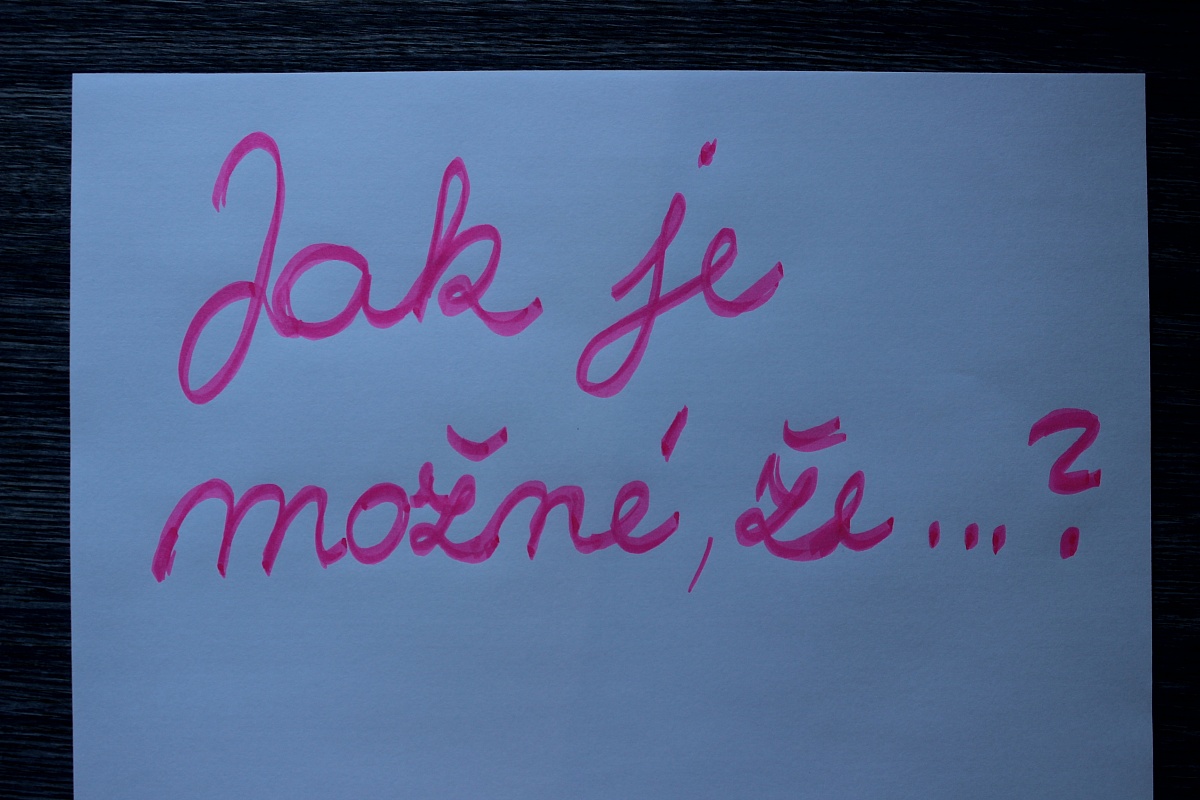 Jak je
možné, že...?